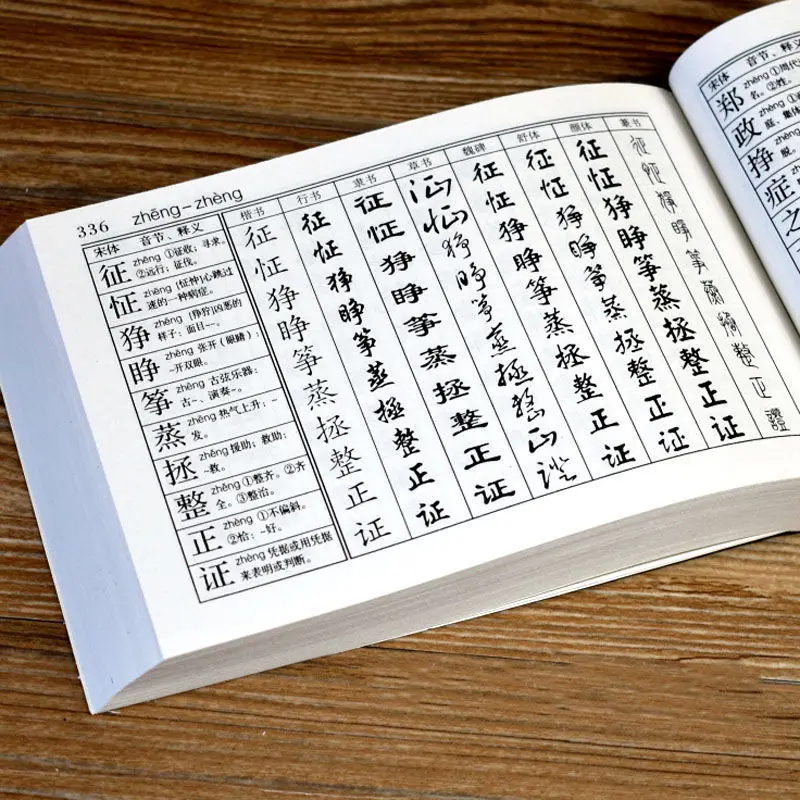 336 zhēng－zhèng
宋体 音节、释义 楷书 行书 隶书 草书 魏碑 舒体 颜体 篆书
征 zhēng ①征收；寻求。
②远行；征伐。 征 征 征 征 征 征 征 征
怔 zhēng [怔忡]心跳过
速的一种病症。 怔 怔 怔 怔 怔 怔 怔 怔
狰 zhēng [狰狞]凶恶的
样子：面目~~。 狰 狰 狰 狰 狰 狰 狰 狰
睁 zhēng 张开(眼睛)：
~开双眼。 睁 睁 睁 睁 睁 睁 睁 睁
筝 zhēng 古弦乐器：
古~；演奏~。 筝 筝 筝 筝 筝 筝 筝 筝
蒸 zhēng 热气上升：~
发。 蒸 蒸 蒸 蒸 蒸 蒸 蒸 蒸
拯 zhěng 援助；救助：
~救。 拯 拯 拯 拯 拯 拯 拯 拯
整 zhěng ①整齐。②齐
全。③整治。 整 整 整 整 整 整 整 整
正 zhèng ①不偏斜。
②恰：~好。 正 正 正 正 正 正 正 正
证 zhèng 凭据或用凭据
来表明或判断。 证 证 证 证 证 证 证 證
宋体 音节、释义
郑 zhèng ①周代
名。②姓。
政 zhèng
庭、集体
挣 zhèng
脱。
症 zhèng
之